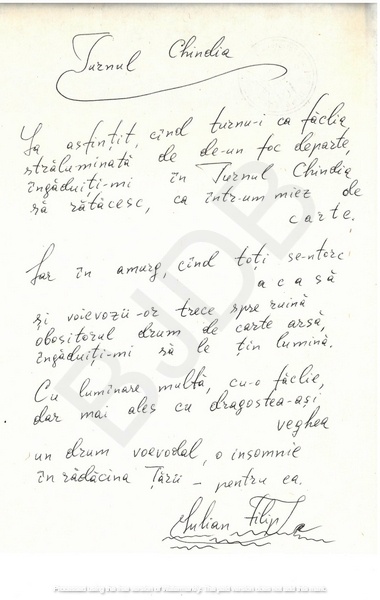 Turnul Chindia
La asfințit, cînd turnu-i ca făclia
străluminată de de-un foc departe,
îngăduiți-mi în Turnul Chindia
să rătăcesc, ca într-un miez de
carte.
Iar în amurg, cînd toți se-ntorc
acasă
și voievozii-or trece spre ruină
obositorul drum de carte arsă,
îngăduiți-mi să le țin lumină.
Cu luminare multă, cu-o făclie,
dar mai ales cu dragostea-ași
veghea
un drum voevodal, o insomnie
în rădăcina Țării – pentru ea.
Iulian Filip
BJDB